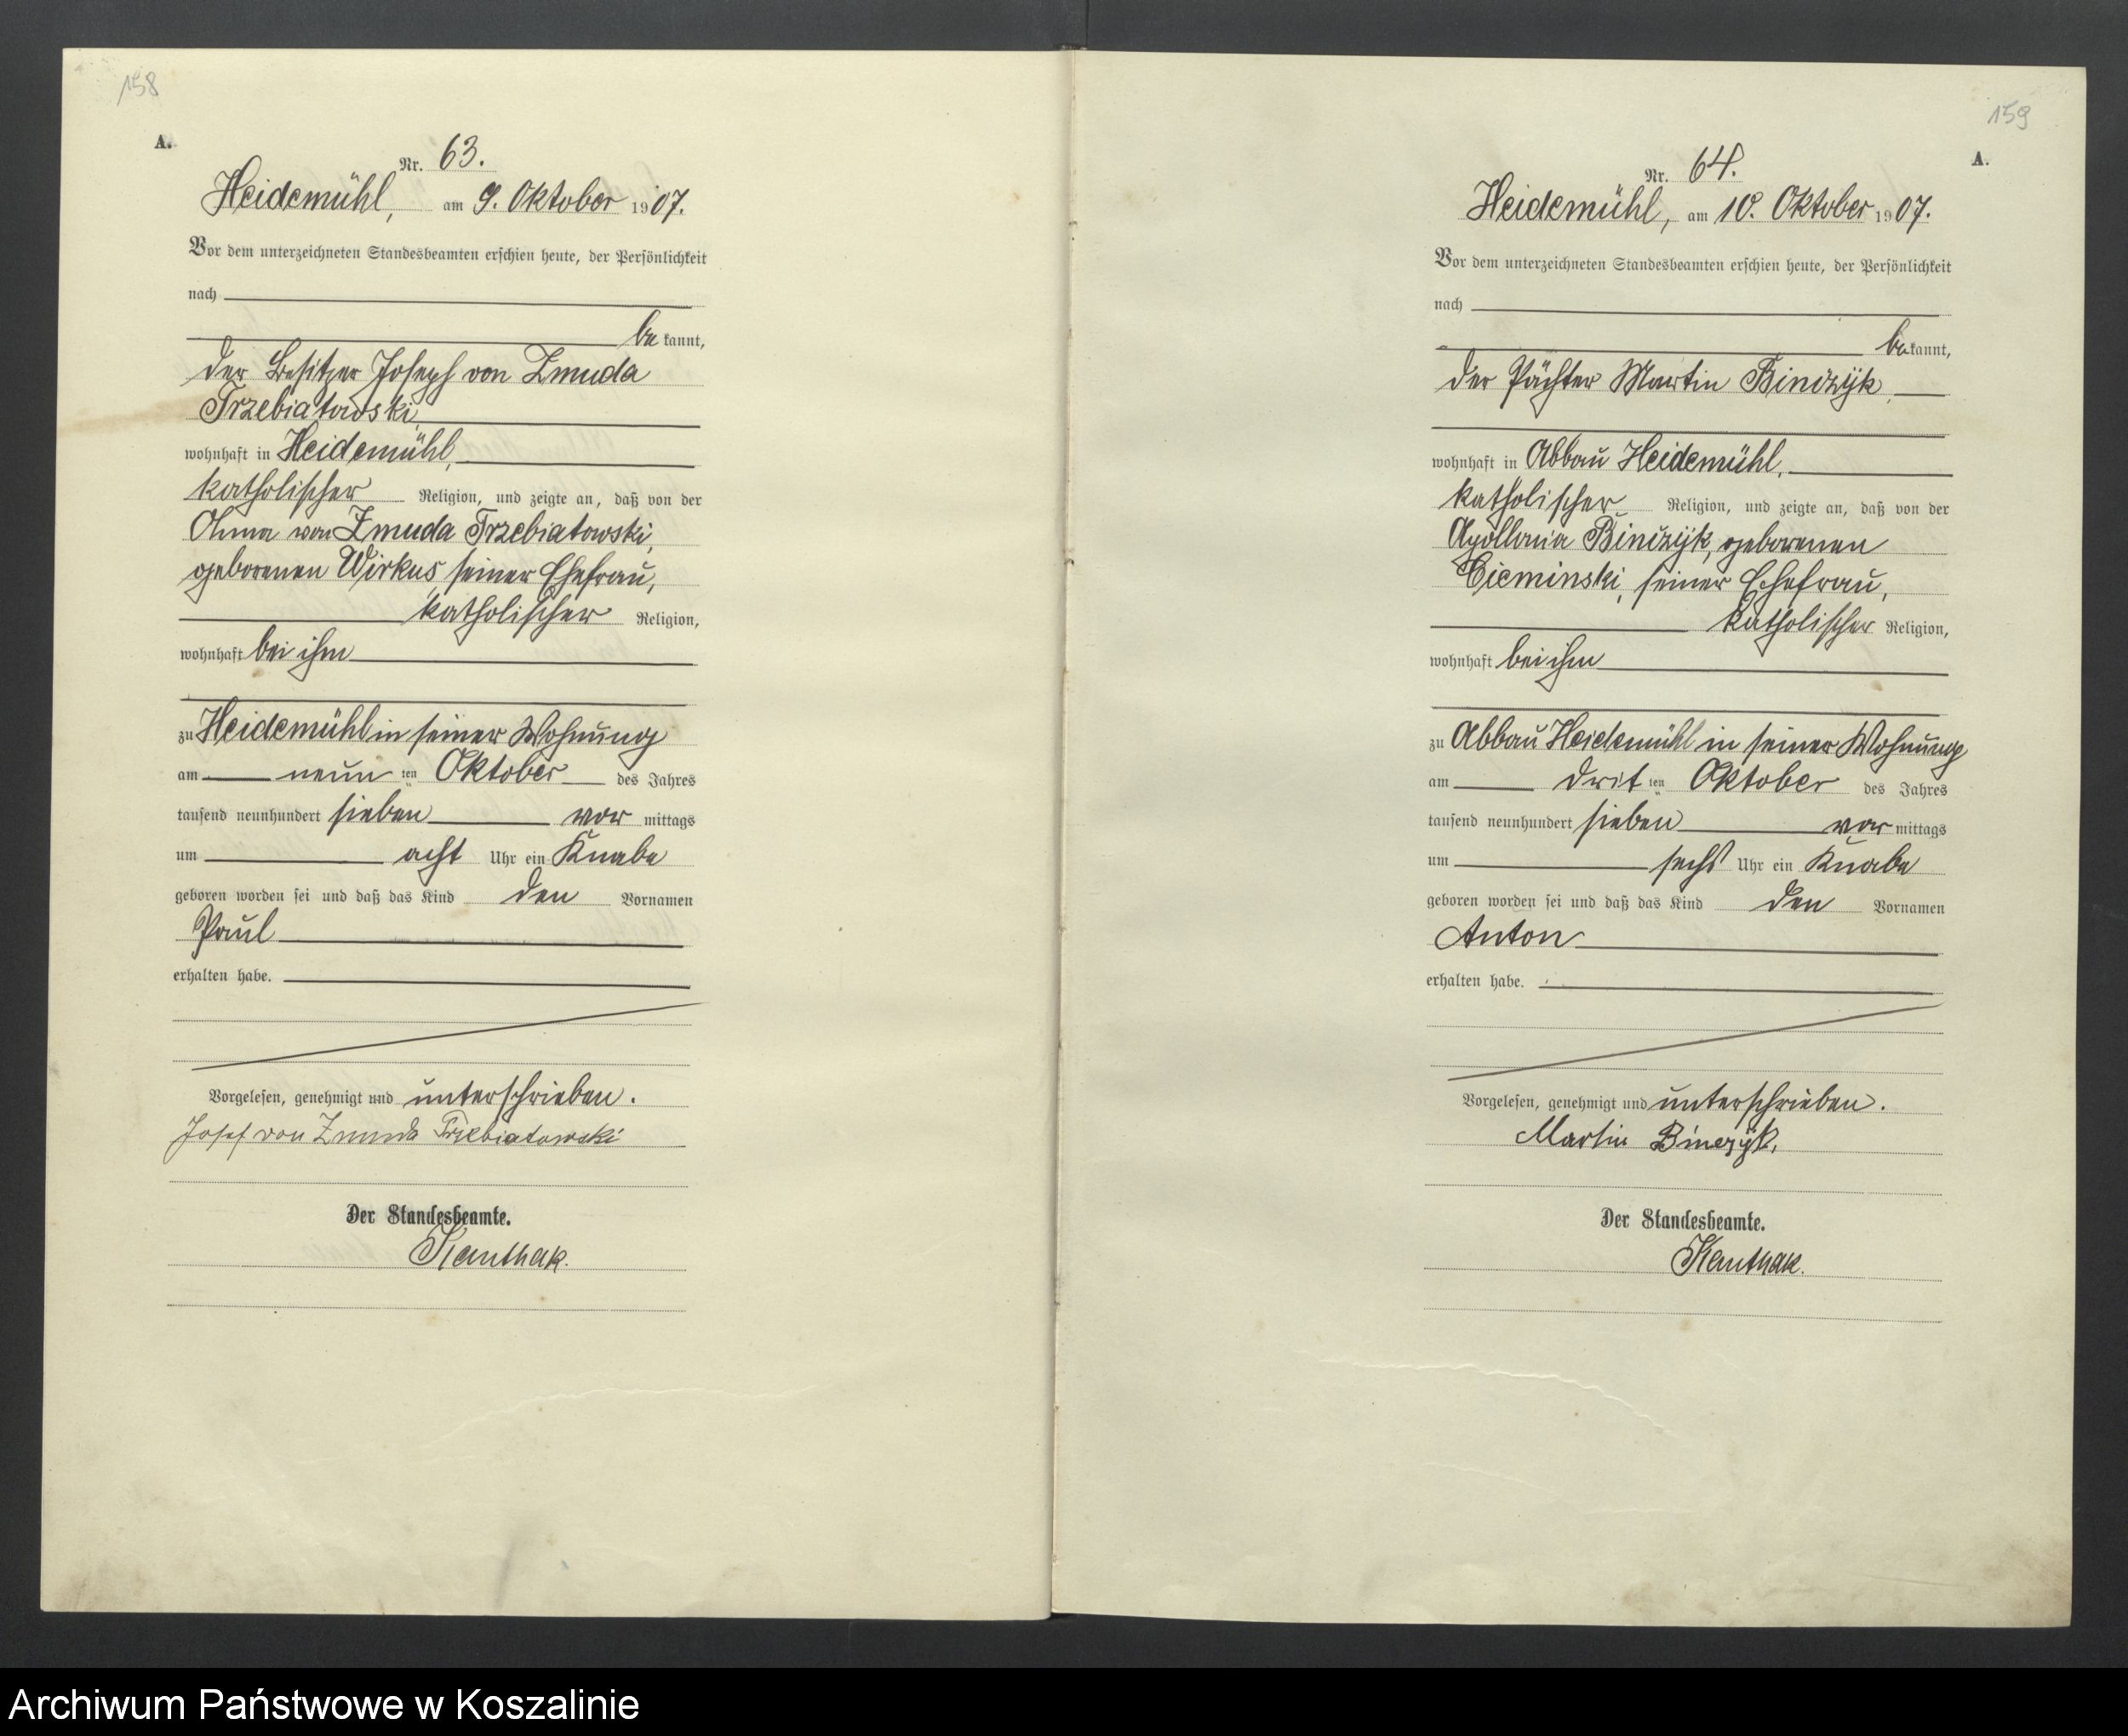 158
A.
Nr. 63.
Heidemühl, am 9. Oktober 1907.
Vor dem unterzeichneten Standesbeamten erschien heute, der Persönlichkeit
nach
be kannt,
der Besitzer Joseph von Zmuda
Trzebiatowski,
wohnhaft in Heidemühl,
katholischer Religion, und zeigte an, daß von der
Anna von Zmuda Trzebiatowski,
geborenen Wirkus, seiner Ehefrau,
katholischer Religion,
wohnhaft bei ihm
zu Heidemühl in seiner Wohnung
am neun ten Oktober des Jahres
tausend neunhundert sieben vor mittags
um acht Uhr ein Knabe
geboren worden sei und daß das Kind den Vornamen
Paul
erhalten habe.
Vorgelesen, genehmigt und unterschrieben.
Josef von Zmuda Trzebiatowski
Der Standesbeamte.
Kanthak.
159
A.
Nr. 64.
Heidemühl, am 10. Oktober 1907.
Vor dem unterzeichneten Standesbeamten erschien heute, der Persönlichkeit
nach
be kannt,
der Pächter Martin Binczyk,
wohnhaft in Abbau Heidemühl,
katholischer Religion, und zeigte an, daß von der
Apollonia Binczyk, geborenen
Cieminski, seiner Ehefrau,
katholischer Religion,
wohnhaft bei ihm
zu Abbau Heidemühl in seiner Wohnung
am drit ten Oktober des Jahres
tausend neunhundert sieben vor mittags
um sechs Uhr ein Knabe
geboren worden sei und daß das Kind den Vornamen
Anton
erhalten habe.
Vorgelesen, genehmigt und unterschrieben.
Martin Binczyk,
Der Standesbeamte.
Kanthak.
Archiwum Państwowe w Koszalinie